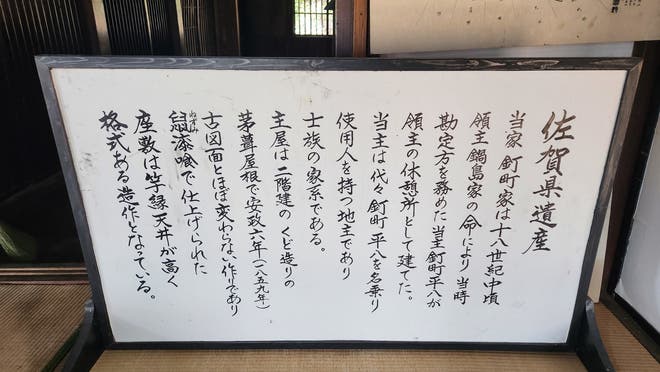 佐賀県遺産
当家 釘町家は十八世紀中頃
領主 鍋島家の命により 当時
勘定方を務めた当主釘町平八が
領主の休憩所として建てた。
当主は代々 釘町 平八を名乗り
使用人を持つ地主であり
士族の家系である。
主屋は二階建の くど造りの
茅葺屋根で安政六年(一八五九年)
古図面とほぼ変わらない作りであり
鼠漆喰で仕上げられた
ねずみ
座敷は竿縁天井が高く
格式ある造作となっている。